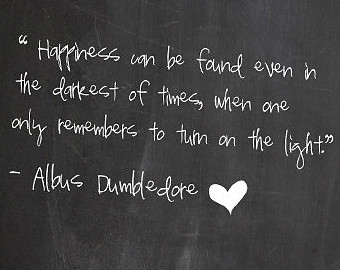 “ Happiness can be found even in
the darkest of times, when one
only remembers to turn on the light.”
- Albus Dumbledore